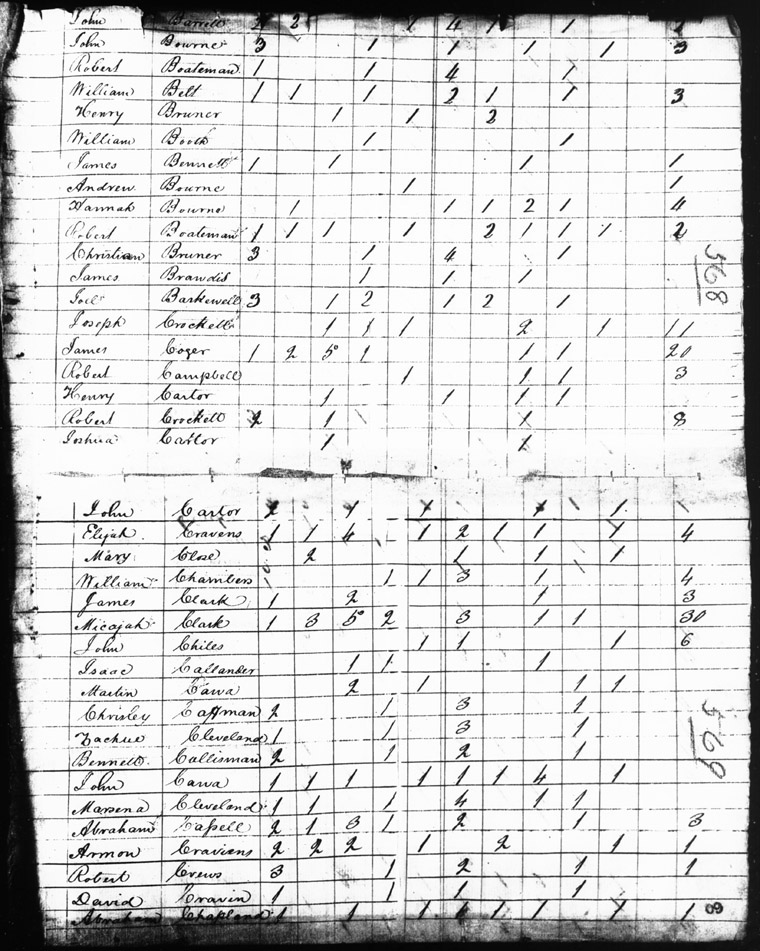 John Barrett 2 2 1 4 1 1 2
John Bourne 3 1 1 1 1 3
Robert Boateman 1 1 4 1
William Belt 1 1 1 2 1 1 3
Henry Bruner 1 1 2
William Booth 1 1
James Bennett 1 1 1 1
Andrew Bourne 1 1
Hannah Bourne 1 1 1 2 1 4
Robert Boateman 1 1 1 1 2 1 1 1 2
Christian Bruner 3 1 4 1
James Brandis 1 1 1
Joel Barkewell 3 1 2 1 2 1
Joseph Crockett 1 1 1 2 1 11
James Coger 1 2 5 1 1 1 20
Robert Campbell 1 1 1 3
Henry Cartor 1 1 1 1
Robert Crockett 2 1 1 8
Joshua Cartor 1 1
568
John Cartor 2 1 1 1 1 1
Elijah Cravens 1 1 4 1 2 1 1 1 4
Mary Close 2 1 1 1
William Chambers 1 1 3 1 4
James Clark 1 2 1 3
Micajah Clark 1 3 5 2 3 1 1 30
John Chiles 1 1 1 6
Isaac Callander 1 1 1
Martin Cawa 2 1 1 1
Chrisley Caffman 2 1 3 1
Zachue Cleveland 1 1 3 1
Bennett Callisman 2 1 2 1
John Cawa 1 1 1 1 1 1 4 1
Marsena Cleveland 1 1 1 4 1 1
Abraham Cassell 2 1 3 1 2 1 3
Armon Craviens 2 2 2 1 2 1 1
Robert Crews 3 1 2 1 1
David Cravin 1 1 1 1
Abraham Chapland 1 1 1 4 1 1 1 1
569